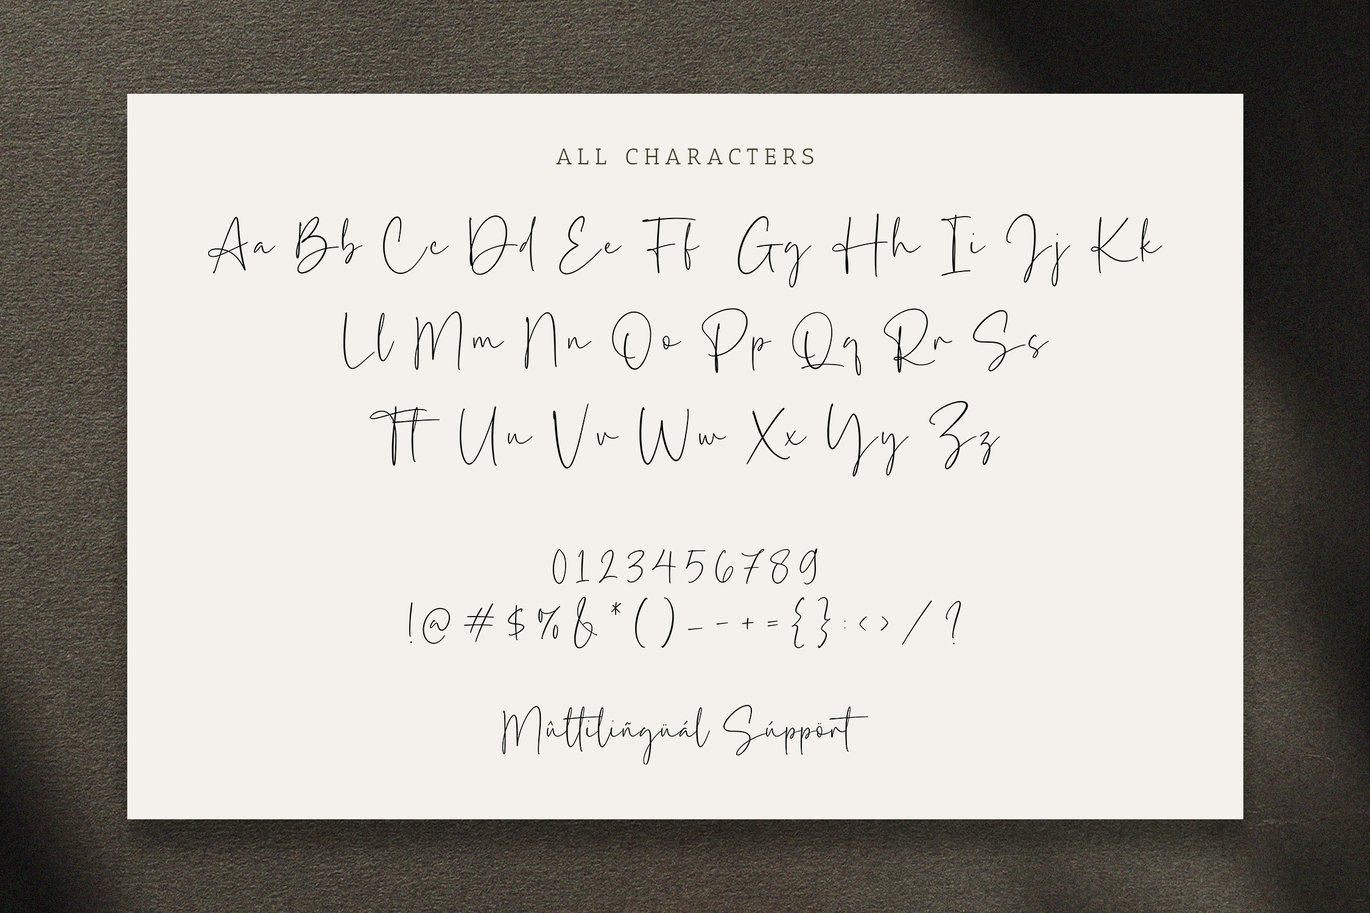 ALL CHARACTERS
Aa Bb Cc Dd Ee Ff Gg Hh Ii Jj Kk
Ll Mm Nn Oo Pp Qq Rr Ss
Tt Uu Vv Ww Xx Yy Zz
0123456789
!@#$%&*()_-+={}:<>/?
Mûltilingüál Súppört